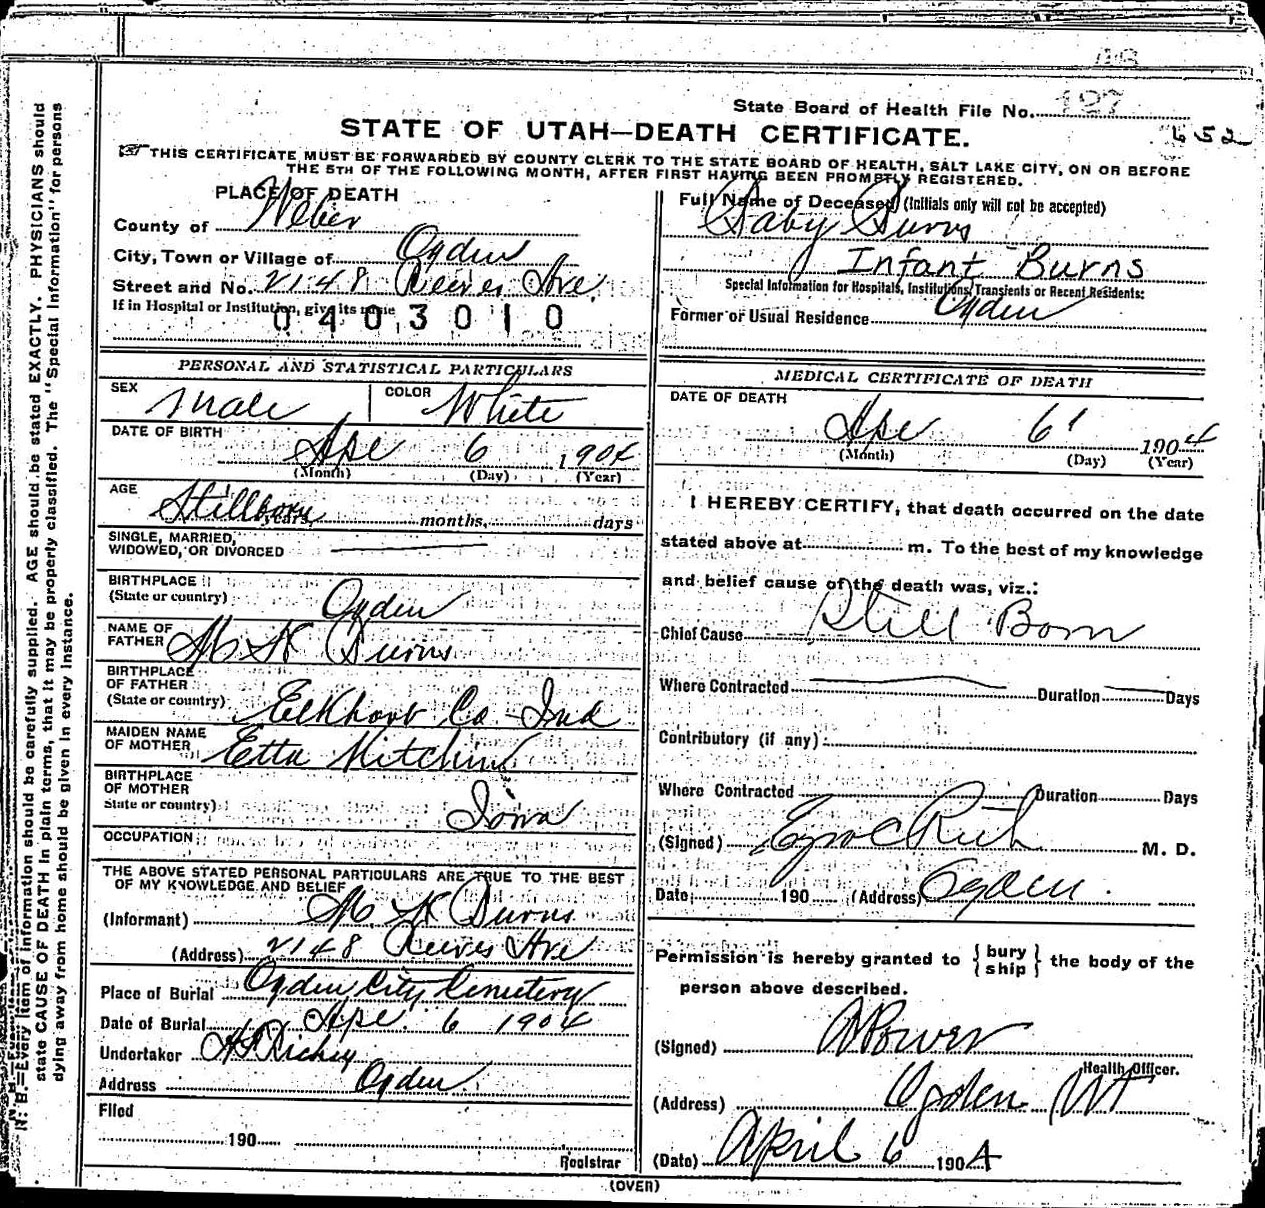 State Board of Health File No. 127
652
STATE OF UTAH—DEATH CERTIFICATE.
THIS CERTIFICATE MUST BE FORWARDED BY COUNTY CLERK TO THE STATE BOARD OF HEALTH, SALT LAKE CITY, ON OR BEFORE
THE 5TH OF THE FOLLOWING MONTH, AFTER FIRST HAVING BEEN PROMPTLY REGISTERED.
PLACE OF DEATH
County of Weber
City, Town or Village of Ogden
Street and No. 2148 Reeves Ave.
If in Hospital or Institution, give its name
0403010
Full Name of Deceased (Initials only will not be accepted)
Baby Burns
Infant Burns
Special Information for Hospitals, Institutions, Transients or Recent Residents:
Former or Usual Residence Ogden
PERSONAL AND STATISTICAL PARTICULARS
SEX Male COLOR White
DATE OF BIRTH
Apr 6 1904
(Month) (Day) (Year)
AGE
Stillborn years, months, days
SINGLE, MARRIED,
WIDOWED, OR DIVORCED
BIRTHPLACE
(State or country) Ogden
NAME OF
FATHER M K Burns
BIRTHPLACE
OF FATHER
(State or country) Elkhart Co - Ind
MAIDEN NAME
OF MOTHER Etta
BIRTHPLACE
OF MOTHER
State or country) Iowa
OCCUPATION
THE ABOVE STATED PERSONAL PARTICULARS ARE TRUE TO THE BEST
OF MY KNOWLEDGE AND BELIEF
(Informant) M. K Burns
(Address) 2148 Reeves Ave
Place of Burial Ogden City Cemetery
Date of Burial Apr. 6 1904
Undertaker Richey
Address Ogden
Filed
190
Registrar
MEDICAL CERTIFICATE OF DEATH
DATE OF DEATH
Apr 6 1904
(Month) (Day) (Year)
I HEREBY CERTIFY, that death occurred on the date
stated above at m. To the best of my knowledge
and belief cause of the death was, viz.:
Chief Cause Still Born
Where Contracted Duration Days
Contributory (if any)
Where Contracted Duration Days
(Signed) Ezra C Rich M. D.
Date, 190 (Address) Ogden.
Permission is hereby granted to {bury
ship} the body of the
person above described.
(Signed) Power
Health Officer.
(Address) Ogden Ut
(Date) April 6 1904
(OVER)
N. B.—Every item of information should be carefully supplied. AGE should be stated EXACTLY. PHYSICIANS should
state CAUSE OF DEATH in plain terms, that it may be properly classified. The "Special Information" for persons
dying away from home should be given in every instance.